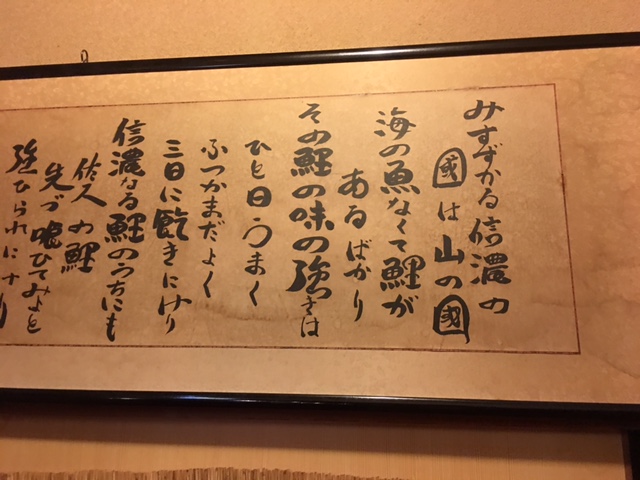 みすずかる信濃の
國は山の國
海の魚なくて鯉が
あるばかり
その鯉の味の強さは
ひと日うまく
ふつかまだよく
三日に飽きにけり
信濃なる鯉のうちにも
佐久の鯉
先づ喰ひてみよと
強ひられにけり